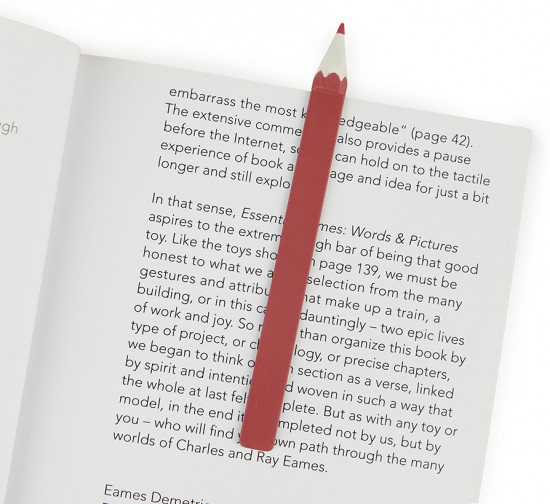 ugh
embarrass the most k edgeable” (page 42).
The extensive comme also provides a pause
before the Internet, so can hold on to the tactile
experience of book a age and idea for just a bit
longer and still explo
In that sense, Essenti mes: Words & Pictures
aspires to the extrem gh bar of being that good
toy. Like the toys sho n page 139, we must be
honest to what we a selection from the many
gestures and attribu hat make up a train, a
building, or in this ca dauntingly – two epic lives
of work and joy. So r than organize this book by
type of project, or ch logy, or precise chapters,
we began to think o section as a verse, linked
by spirit and intenti d woven in such a way that
the whole at last fel plete. But as with any toy or
model, in the end it mpleted not by us, but by
you – who will find y own path through the many
worlds of Charles and Ray Eames.
Eames Demetri